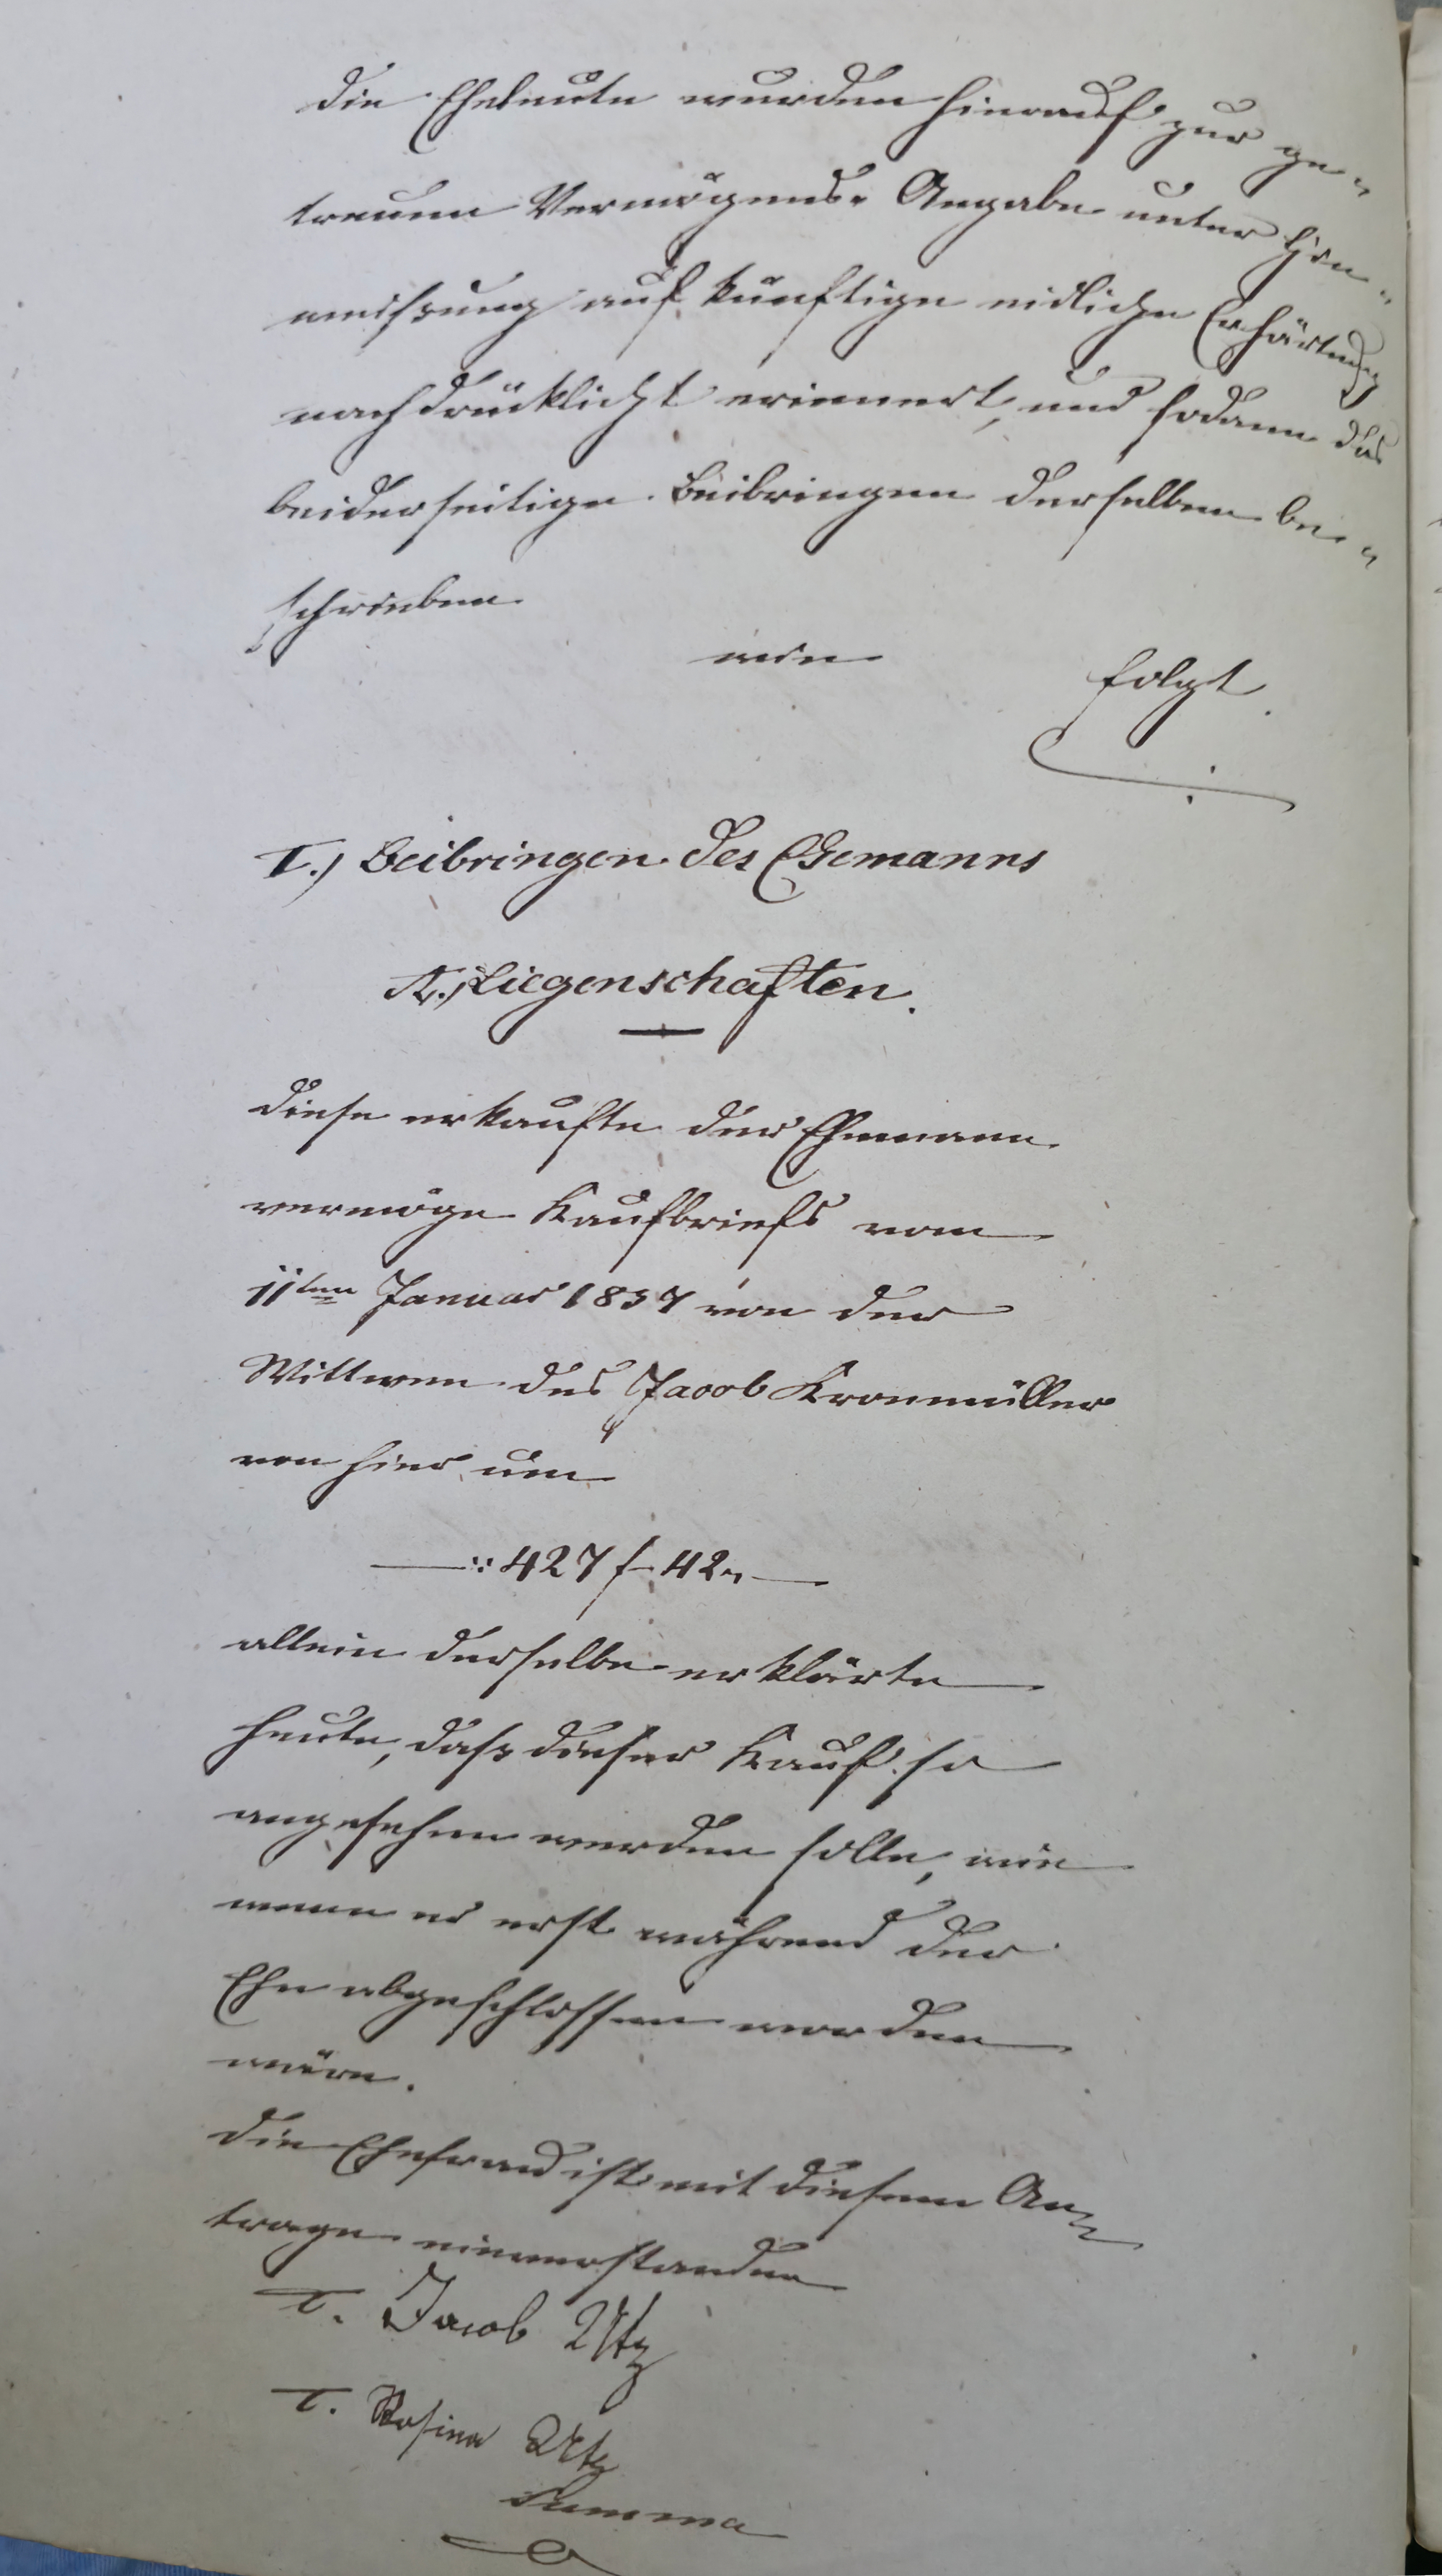 Die Eheleute wurden hierauf zur ge„
treuen Vermögens„ Angabe unter Hin„
weisung auf künftige eidliche Erhärtung
nachdrücklichst erinnert, und sodann das
beiderseitige Beibringen derselben be„
schrieben
wie folgt.
I.) Beibringen des Ehemanns
A.) Liegenschaften.
Diese erkaufte der Ehemann
vermöge Kaufbriefs vom
11ten Januar 1837 von der
Wittwe des Jacob Kronmüller
von hier um
—:: 427 f 42„—
allein derselbe erklärte
heute, daß dieser Kauf so
angesehen werden solle, wie
wenn er erst während der
Ehe abgeschlossen worden
wäre.
Die Ehefrau ist mit diesem An„
trage einverstanden
T. Jacob Utz
T. Rosina Utz
Summa